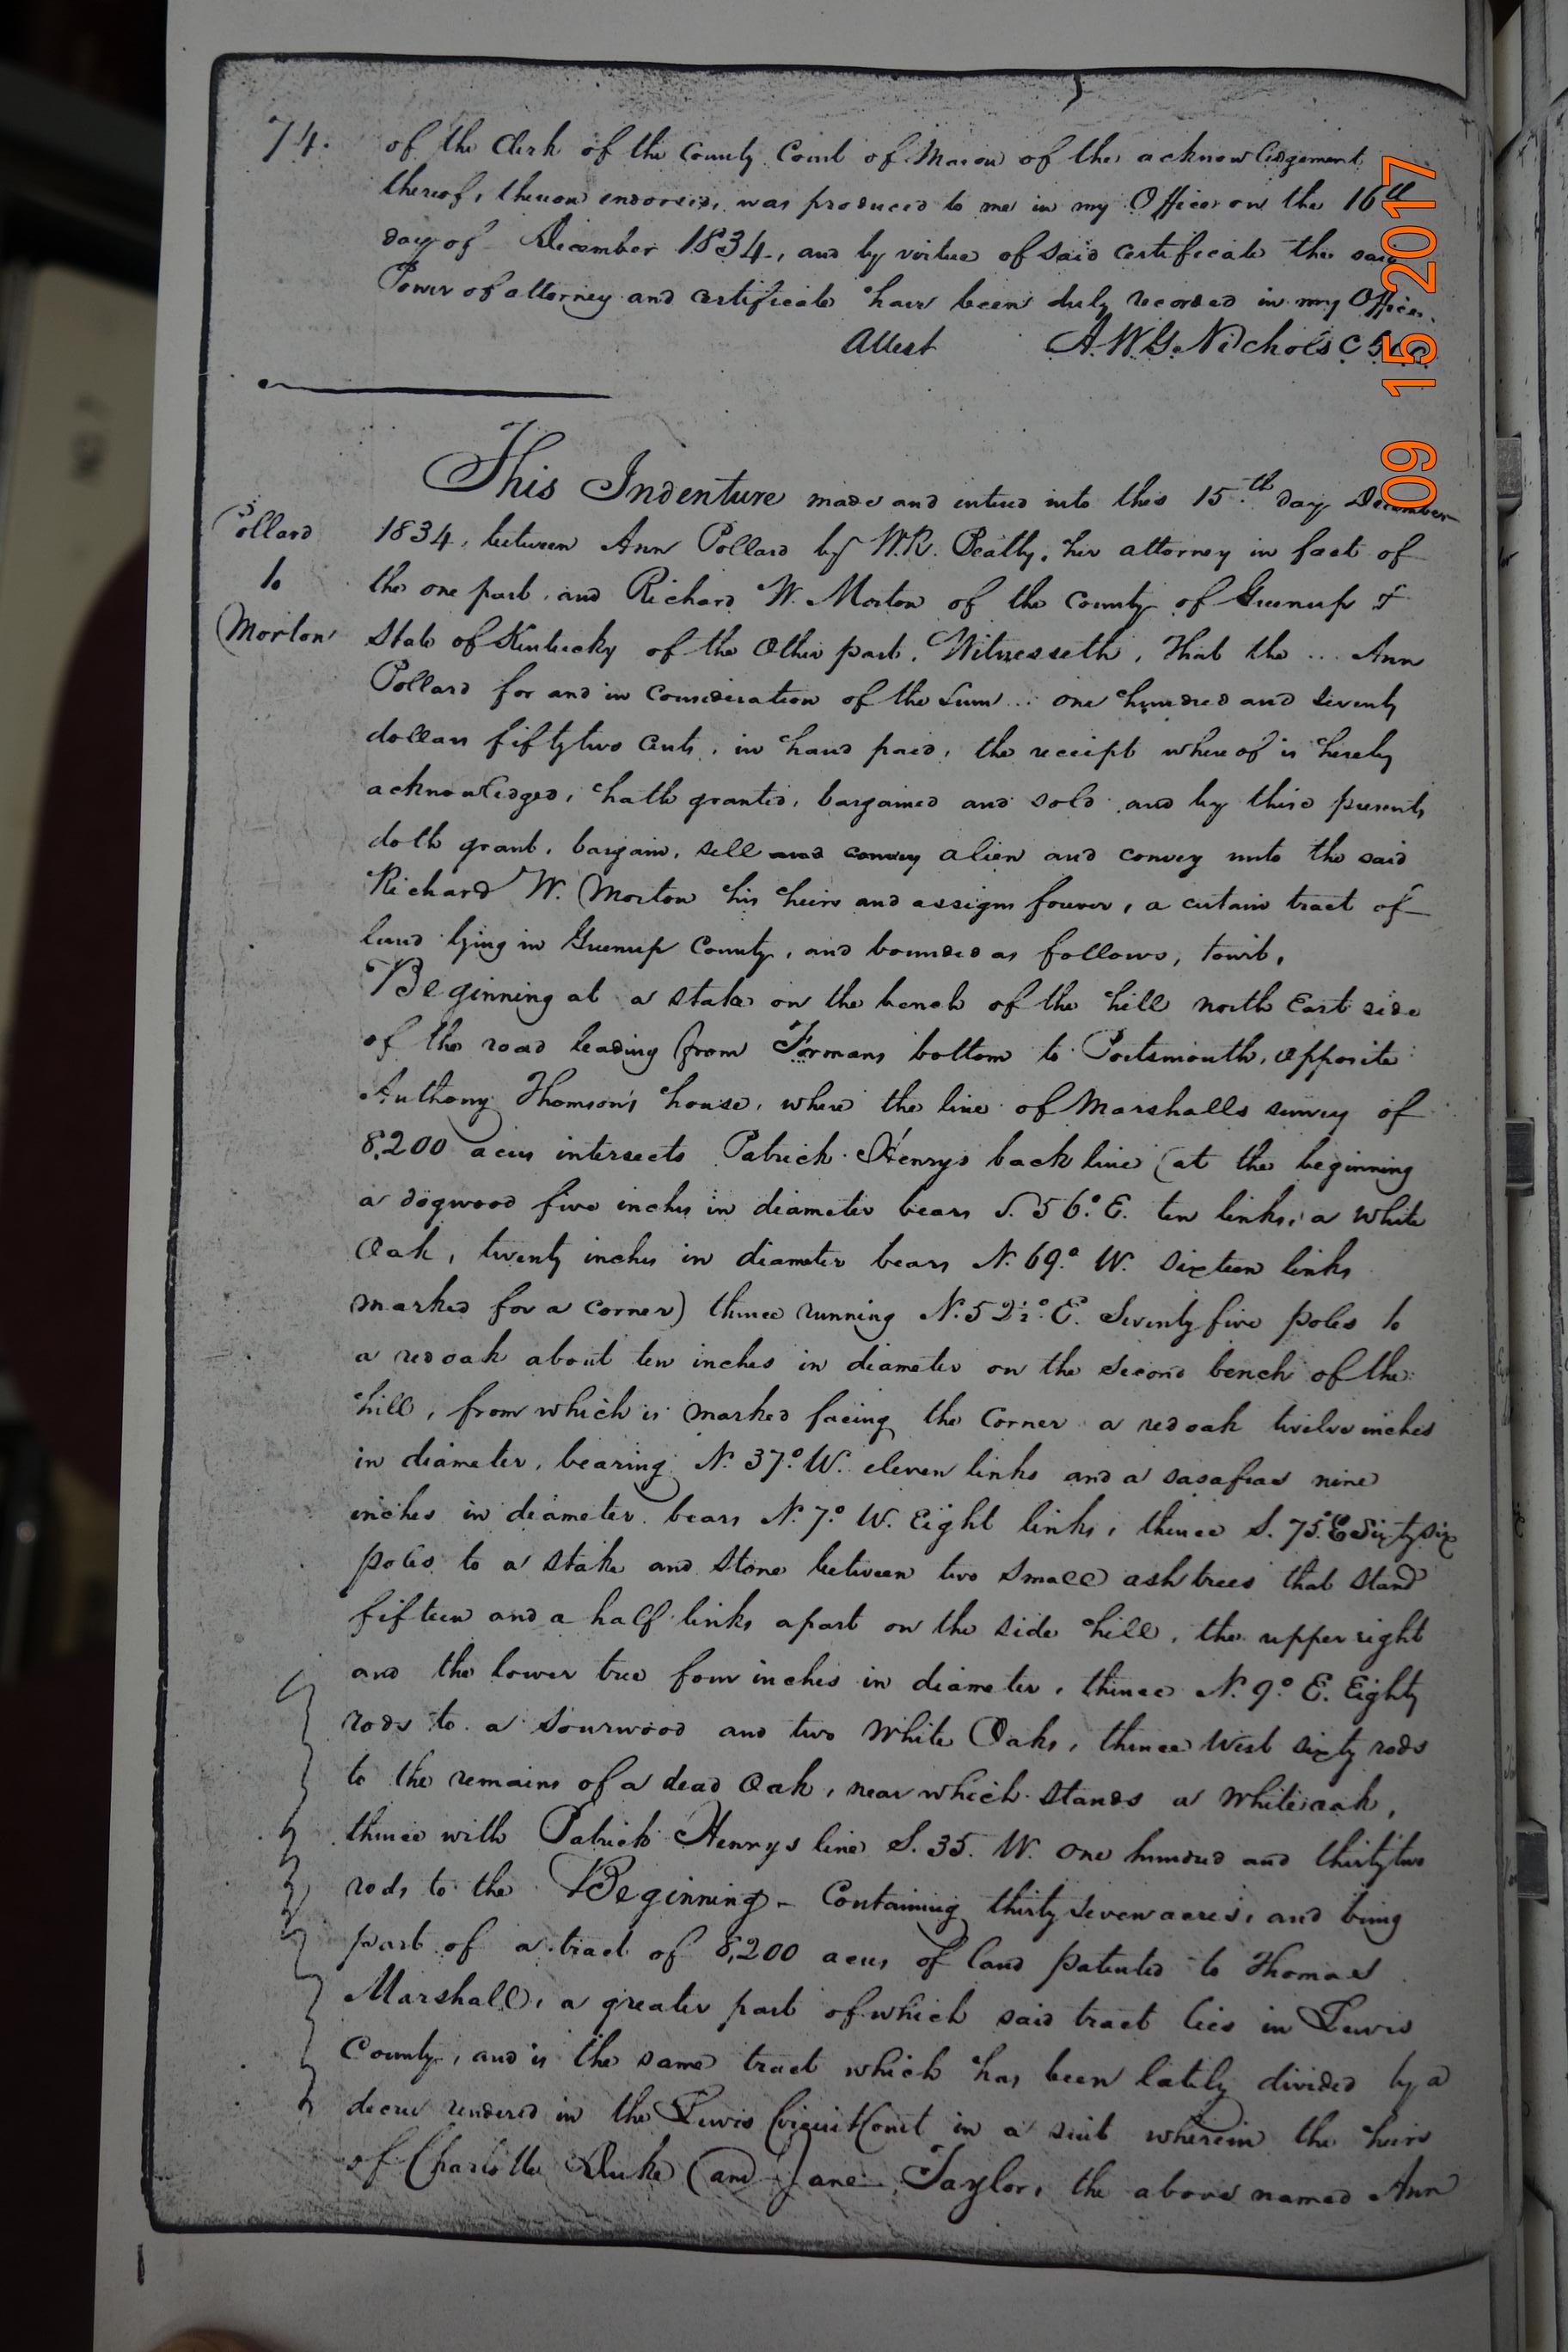 74.
of the Clerk of the County Court of Mason of the acknowledgement
thereof, thereon endorsed, was produced to me in my Office on the 16th
day of December 1834, and by virtue of said certificate the said
Power of attorney and certificate have been duly recorded in my Office.
Attest A. W. G. Nichols
This Indenture made and entered into this 15th day December
Pollard
to
Morton
1834, between Ann Pollard by W. R. Beatty, her attorney in fact of
the one part, and Richard W. Morton of the County of Greenup &
State of Kentucky of the Other part, Witnesseth, That the ... Ann
Pollard for and in Consideration of the Sum ... one hundred and seventy
dollars fifty two Cents, in hand paid, the receipt where of is hereby
acknowledged, hath granted, bargained and sold and by these presents
doth grant, bargain, sell and convey alien and convey unto the said
Richard W. Morton his heirs and assigns forever, a certain tract of
land lying in Greenup County, and bounded as follows, towit,
Beginning at a stake on the bench of the hill north East side
of the road leading from Formans bottom to Portsmouth, opposite
Anthony Thomson's house, where the line of Marshalls survey of
8,200 acres intersects Patrick Henrys back line (at the beginning
a dogwood five inches in diameter bears S. 56° E. ten links, a White
Oak, twenty inches in diameter bears N. 69° W. sixteen links
marked for a Corner) thence running N. 52½° E. Seventy five poles to
a red oak about ten inches in diameter on the Second bench of the
hill, from which is marked facing the Corner a red oak twelve inches
in diameter, bearing N. 37° W. eleven links and a sasafras nine
inches in diameter bears N. 7° W. Eight links, thence S. 75° E Sixty six
poles to a stake and Stone between two small ash trees that Stand
fifteen and a half links apart on the side hill, the upper eight
and the lower tree four inches in diameter, thence N. 9° E. Eighty
rods to a Sourwood and two White Oaks, thence West sixty rods
to the remains of a dead Oak, near which stands a White oak,
thence with Patrick Henrys line S. 35. W. One hundred and thirty two
rods to the Beginning - Containing thirty seven acres, and being
part of a tract of 8,200 acres of land patented to Thomas
Marshall, a greater part of which said tract lies in Lewis
County, and is the same tract which has been lately divided by a
decree rendered in the Lewis Circuit Court in a suit wherein the heirs
of Charlotte Duke and Jane Taylor, the above named Ann
09 15 2017